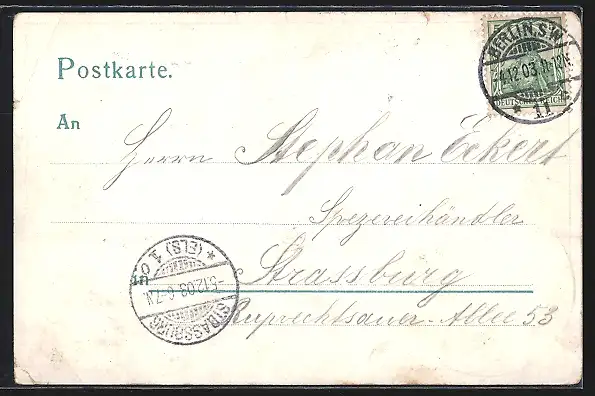 Postkarte.
BERLIN, S.W.
-4.12.03.
* 11
DEUTSCHES REICH
An
Herrn Stephan Eckert
Spezereihändler
Strassburg
Ruprechtsauer-Allee 53
STRASSBURG
-5.12.03. 6-7 N.
* (ELS) 1